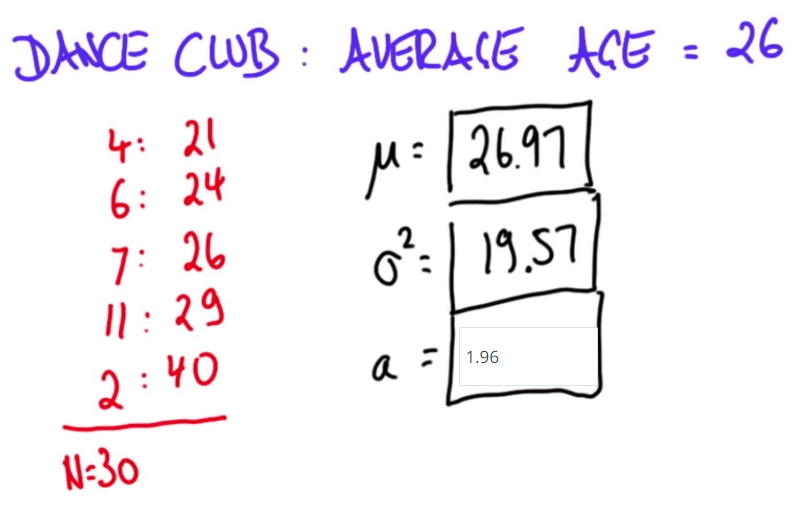 DANCE CLUB: AVERAGE AGE = 26
4: 21
6: 24
7: 26
11: 29
2: 40
N=30
μ= 26.97
σ²= 19.57
a = 1.96